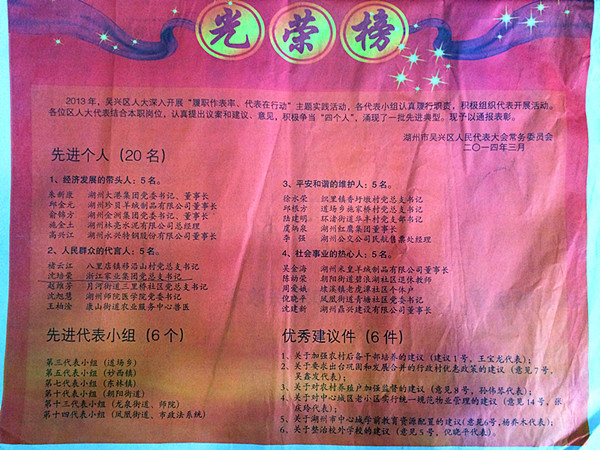 光荣榜
2013年，吴兴区人大深入开展“履职作表率、代表在行动”主题实践活动，各代表小组认真履行职责，积极组织代表开展活动。
各位区人大代表结合本职岗位，认真提出议案和建议、意见，积极争当“四个人”，涌现了一批先进典型。现予以通报表彰。
湖州市吴兴区人民代表大会常务委员会
二〇一四年三月
先进个人（20名）
1、经济发展的带头人：5名。
朱新康 湖州大港集团党委书记、董事长
邱金元 湖州珍贝羊绒制品有限公司董事长
俞锦方 湖州金洲集团党委书记、董事长
施金土 湖州林亮水泥有限公司总经理
高兴江 湖州永兴特钢股份有限公司董事长
2、人民群众的代言人：5名。
褚云江 八里店镇移沿山村党总支书记
沈培荣 浙江家业集团党总支书记
赵维芳 月河街道三里桥社区党总支书记
沈旭慧 湖州师院医学院党委书记
王柏淦 康山街道农业服务中心兽医
3、平安和谐的维护人：5名。
徐水荣 织里镇香圩墩村党总支书记
邱根方 道场乡施家桥村党总支书记
陆建明 环渚街道华丰村党支部书记
虞炳泉 湖州虹鹰集团董事长
李强 湖州公交公司民航售票处经理
4、社会事业的热心人：5名。
吴金海 湖州米皇羊绒制品有限公司董事长
陈幼荣 朝阳街道碧浪湖社区退休教师
周爱娥 埭溪镇老虎潭社区个体户
倪晓平 凤凰街道青塘社区党委书记
沈建新 湖州鼎兴建设有限公司董事长
先进代表小组（6个）
第三代表小组（道场乡）
第五代表小组（妙西镇）
第七代表小组（东林镇）
第十代表小组（朝阳街道）
第十三代表小组（龙泉街道、师院）
第十四代表小组（凤凰街道、市政法系统）
优秀建议件（6件）
1、关于加强农村后备干部培养的建议（建议1号，王宝龙代表）；
2、关于要求出台巩固和发展合并的行政村优惠政策的建议（意见7号，
吴鑫发代表）；
3、关于对农村养殖户加强监督的建议（意见8号，孙伟琴代表）；
4、关于对中心城区老小区实行统一规范物业管理的建议（意见14号，张
庆玲代表）；
5、关于湖州市中心城学前教育资源配置的建议（意见6号，杨乔木代表）；
6、关于整治校外学校的建议（意见5号，倪晓平代表）。